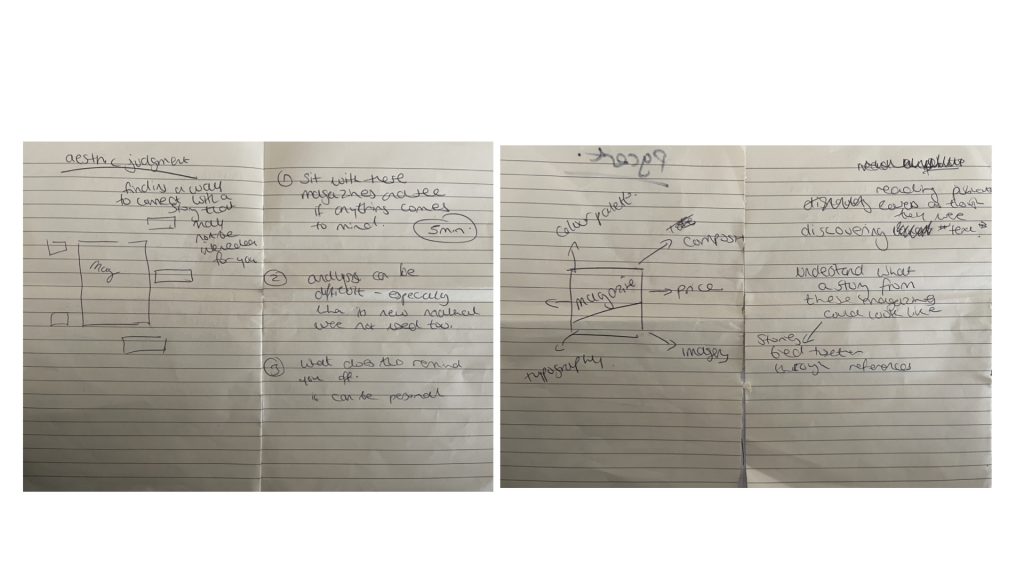 aesthc judgment
finding a way
to connect with a
story that
may
not be
intended
for you
Mag
① Sit with these
magazines and see
if anything comes
to mind.
5min.
② analysis can be
difficult – especially
in new material
were not used too.
③ what does this remind
you off.
can be personal
colour palett.
magazine
price
imagery
typography.
reading
discovering text
understand what
a story from
these magazines
could look like
Stories
through references